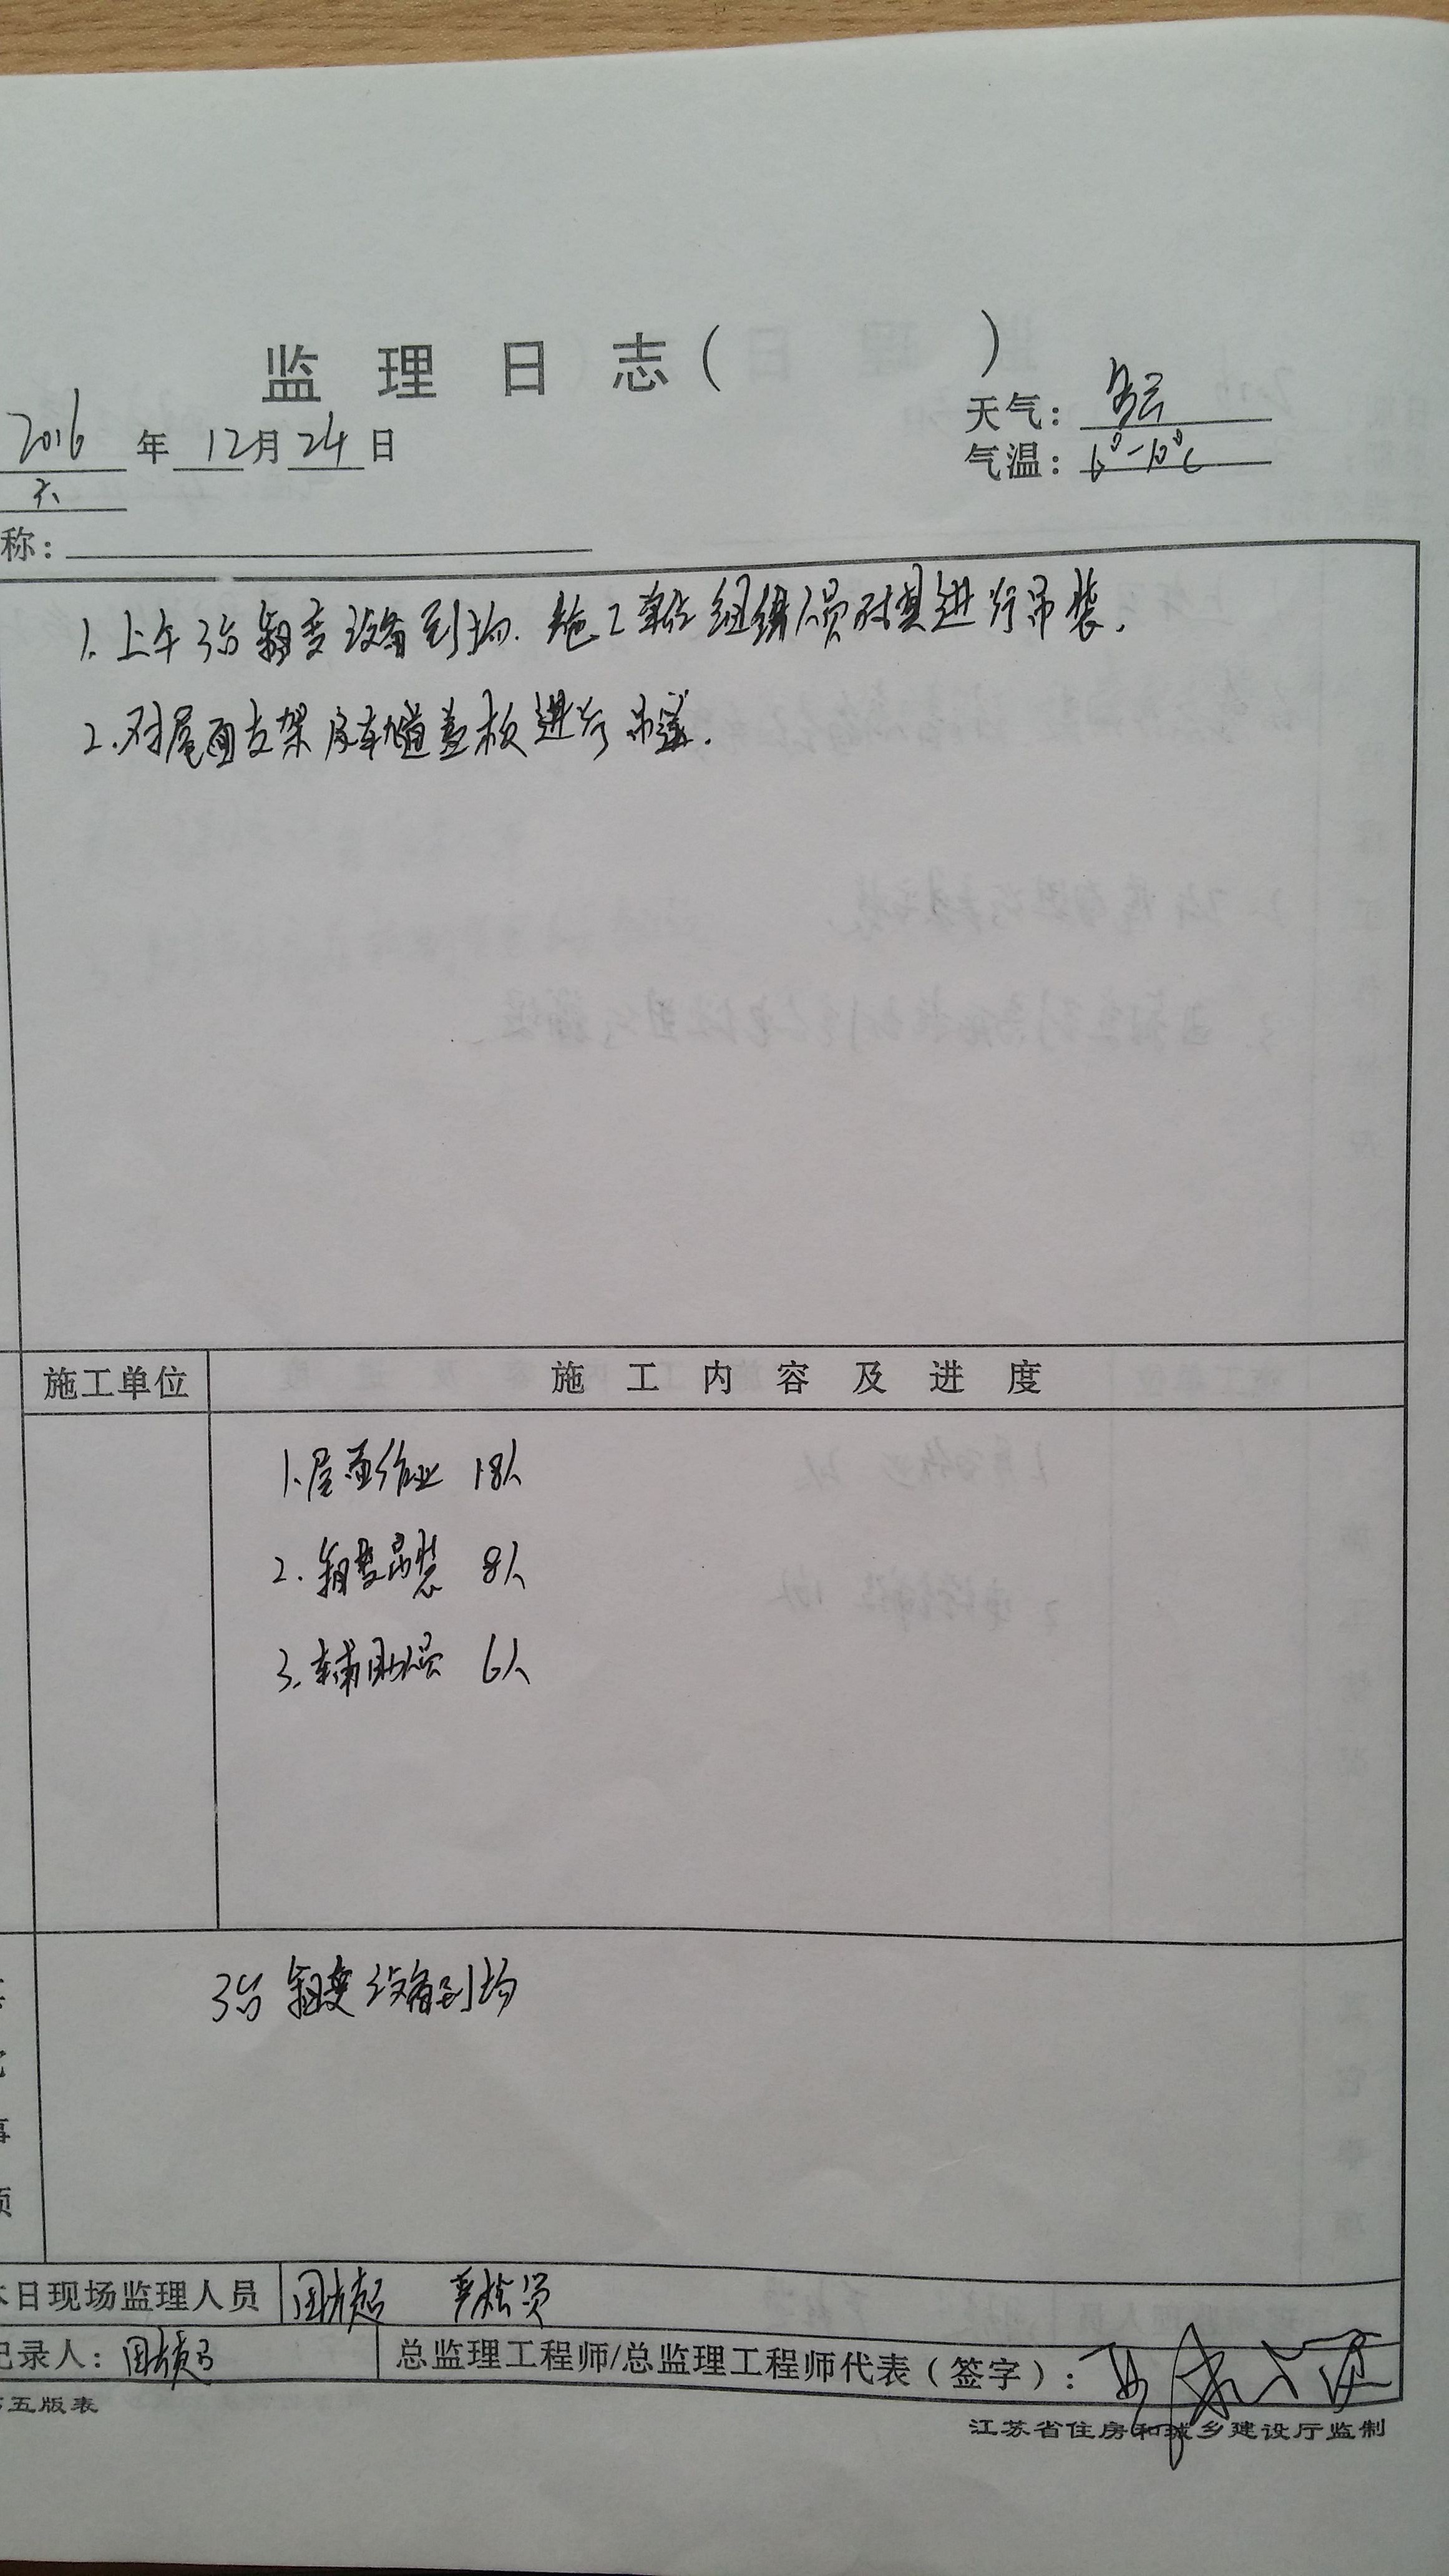 监理日志( )
2016 年 12月 24日
天气：多云
六
气温：6°-10℃
称：
1. 上午3台箱变设备到场.施工单位组织人员对其进行吊装.
2. 对屋面支架及轨道盖板进行吊运.
施工单位
施工内容及进度
1. 屋面作业 18人
2. 箱变吊装 8人
3. 辅助人员 6人
3台箱变设备到场
事
项
本日现场监理人员
记录人：
总监理工程师/总监理工程师代表（签字）：
第五版表
江苏省住房和城乡建设厅监制